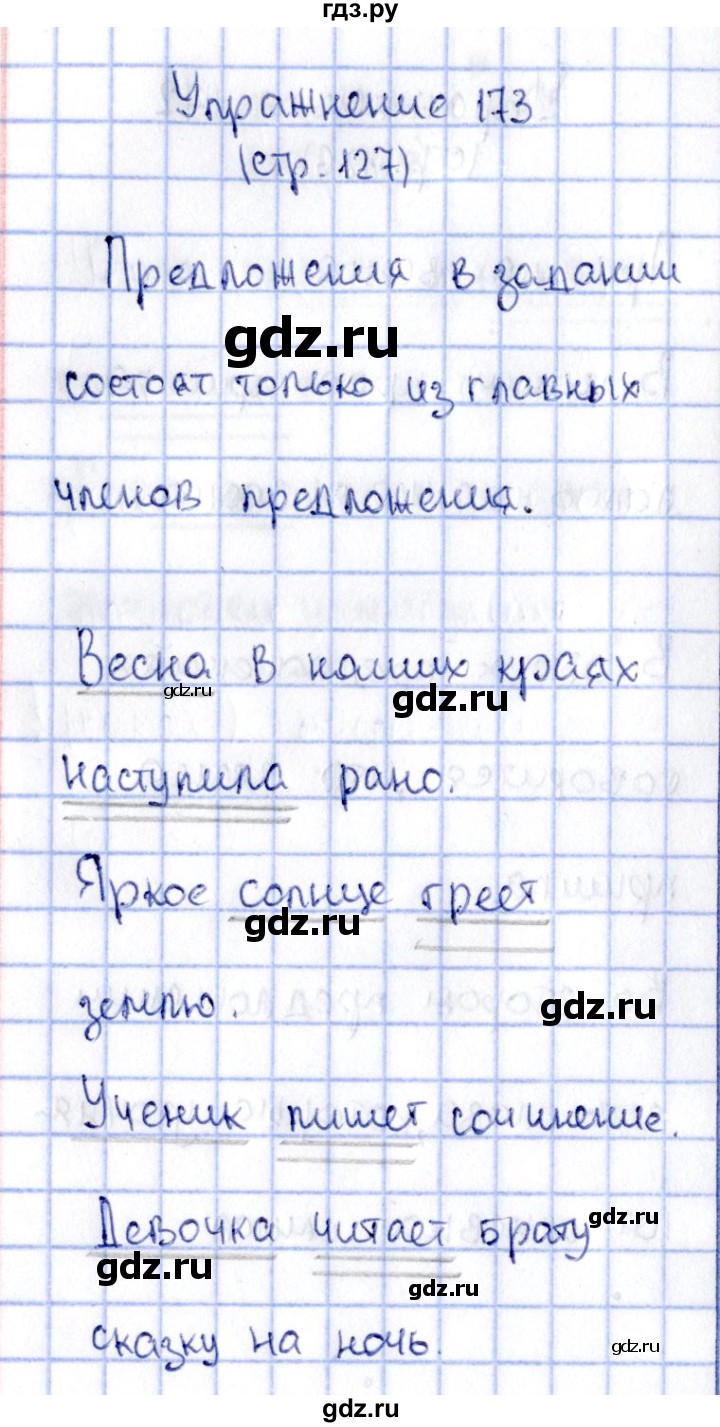 гдз.ру
Упражнение 173
(стр. 127)
Предложения в задании
gdz.ru
состоят только из главных
членов предложения.
Весна в наших краях
gdz.ru
gdz.ru
наступила рано.
Яркое солнце греет
gdz.ru
землю.
gdz.ru
Ученик пишет сочинение.
Девочка читает брату
gdz.ru
gdz.ru
gdz.ru
сказку на ночь.
gdz.ru
gdz.ru